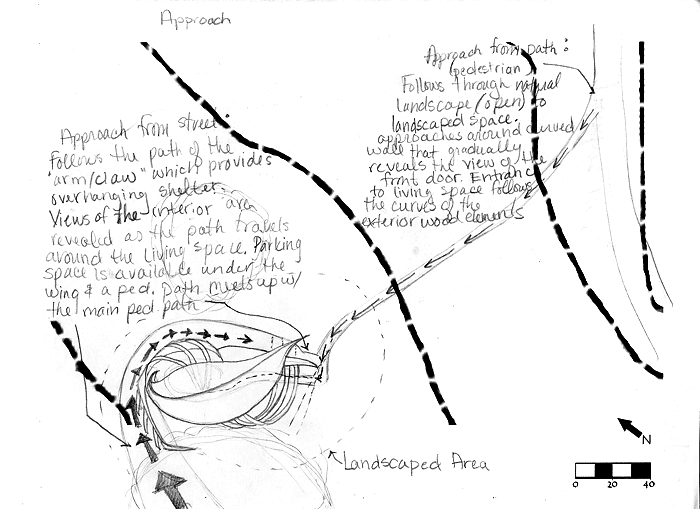 Approach
Approach from path:
(pedestrian)
Follows through natural
landscape (open) to
landscaped space.
approaches around curved
wall that gradually
reveals the view of the
front door. Entrance
to living space follows
the curves of the
exterior wood elements
Approach from street:
Follows the path of the
"arm/claw" which provides
overhanging shelter.
Views of the interior are
revealed as the path travels
around the living space. Parking
space is available under the
wing & a ped. path meets up w/
the main ped path
Landscaped Area
N
0 20 40